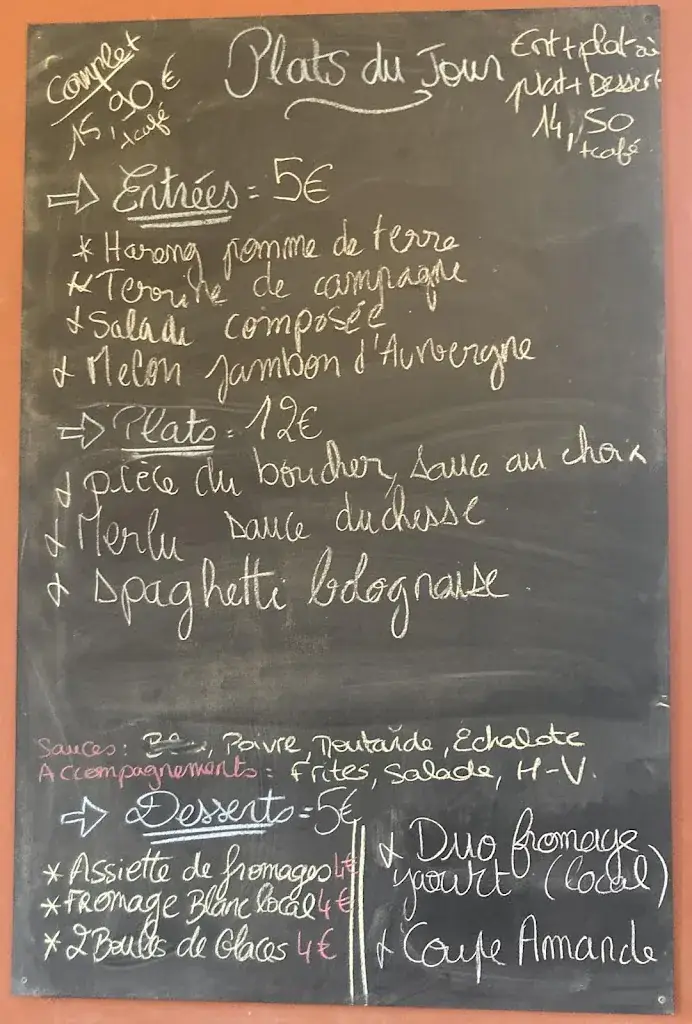 Complet
15,90 €
+café
Plats du Jour
Ent + plat ou
plat + Dessert
14,50
+café
⇒ Entrées = 5€
* Hareng pomme de terre
* Terrine de campagne
* Salade composée
* Melon jambon d'Auvergne
⇒ Plats = 12€
* pièce du boucher, sauce au choix
* Merlu sauce duchesse
* spaghetti bolognaise.
Sauces: , Poivre, Moutarde, Echalote
Accompagnements: Frites, Salade, H-V.
⇒ Desserts = 5€
* Assiette de fromages 4€
* FRomage Blanc local 4€
* 2 Boules de Glaces 4€
* Duo fromage
yaourt (local)
* Coupe Amande